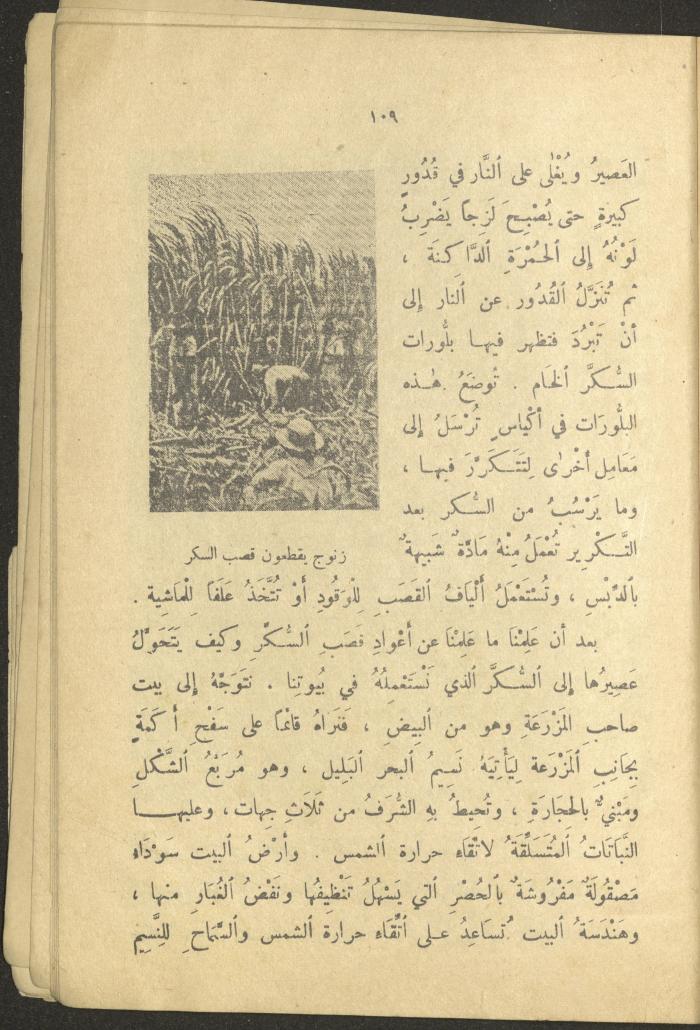 ١٠٩
العَصيرُ ويُغْلٰى على ٱلنَّار في قُدُورٍ
كبيرةٍ حتى يُصْبِحَ لَزِجاً يَضْرِبُ
لَوْنُهُ إلى ٱلحُمْرَةِ ٱلدَّاكِنَة ،
ثم تُنَزَّلُ ٱلقُدُور عن ٱلنار إلى
أنْ تَبْرُدَ فتظهر فيها بلُّورات
السُّكَّرِ ٱلخام . تُوضَعُ هٰذه
البلُّورَات في أكْياسٍ تُرْسَلُ إلى
مَعَامِل أُخْرٰى لِتَتَكَرَّرَ فيها ،
وما يَرْسُبُ من السُّكر بعد
التَّكْرير تُعْمَلُ مِنْهُ مَادَّةٌ شَبيهةٌ
زنوج يقطعون قصب السكر
بٱلدِّبْسِ ، وتُسْتَعْمَلُ أَلْيافُ ٱلقَصَبِ لِلْوَقُودِ أَوْ تُتَّخَذُ عَلَفاً لِلْمَاشِية .
بعد أن عَلِمْنَا ما عَلِمْنَا عن أعْوادِ قَصَبِ ٱلسُّكَّرِ وكيف يَتَحَوَّلُ
عَصِيرُها إلى ٱلسُّكَّرَ ٱلذي نَسْتَعمِلُهُ في بُيوتِنا . نتوَجَّهُ إلى بيت
صاحب ٱلمَزْرَعَةِ وهو من ٱلبِيضِ ، فَنَراهُ قائماً على سَفْحِ أَكَمَةٍ
بِجَانِبِ ٱلمَزْرَعة لِيَأْتِيَهُ نَسِيمُ ٱلبحر ٱلبَلِيل ، وهو مُرَبَّعُ ٱلشَّكْلِ
ومَبْنيٌّ بٱلحِجَارَةِ ، وتُحِيطُ بِهِ الشُّرَفُ من ثَلَاثِ جِهات ، وعليها
النَّبَاتَاتُ ٱلمُتَسَلِّقَةُ لاتِّقَاءِ حرارة ٱلشمس . وأرْضُ ٱلبيت سَوْدَاءُ
مَصْقُولَةٌ مَفْرُوشَةٌ بٱلحُصْرِ ٱلتي يَسْهُلُ تَنْظِيفُها ونَفْضُ ٱلغُبَارِ منها ،
وهَنْدَسَةُ ٱلبيت تُساعِدُ على ٱتِّقَاءِ حرارة ٱلشمس وٱلسَّمَاحِ لِلنَّسِيمِ